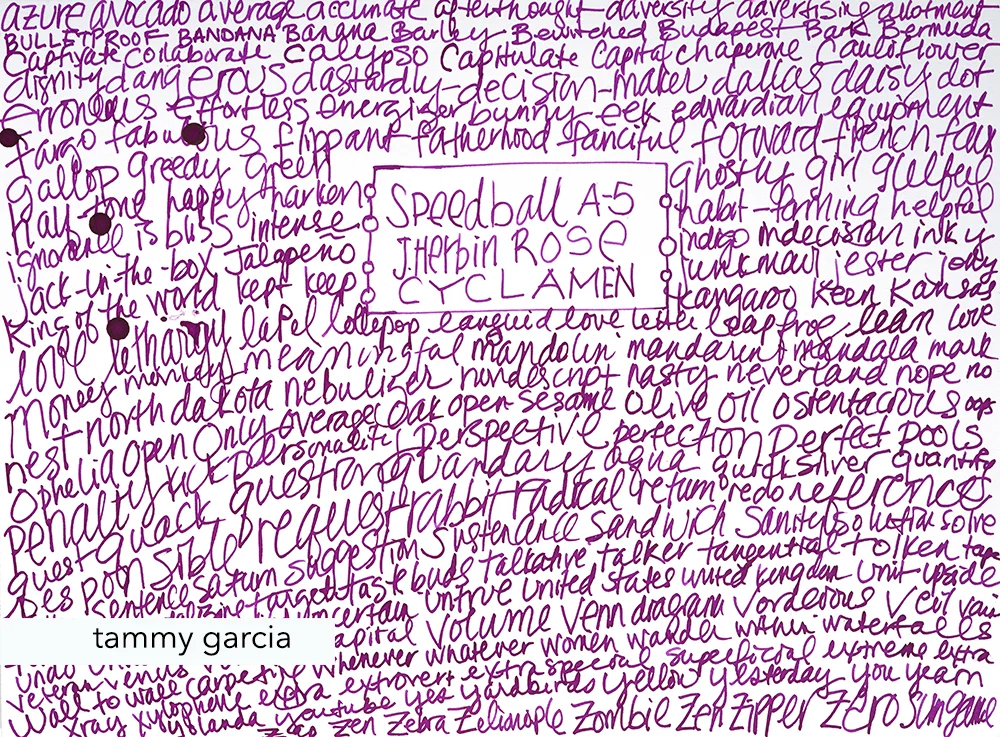 azure avocado average acclimate afterthought adversity advertising allotment
BULLETPROOF BANDANA Banana Barley Bewitched Budapest Bark Bermuda
Captivate collaborate calypso Capitulate Capita chaperone Cauliflower
dignity dangerous dastardly-decision-maker dallas daisy dot
erroneous effortless energizer bunny eek edwardian equipment
Fargo fabulous flippant fatherhood fanciful forward french faux
gallop greedy green ghostly girl
half-tone happy harken habit-forming helpful
Speedball A-5
ignorance is bliss intense indigo indecision inky
J.Herbin ROSE
jack-in-the-box Jalapeno junkman jester jolly
CYCLAMEN
King of the world kept keep kangaroo keen Kansas
love lethargy lapel lollipop languid love leapfrog lean love
money monkey meaningful mandolin mandarin mandala mark
nest north dakota nebulizer nondescript nasty neverland nope no
Ophelia open Only average Oak open sesame Olive oil ostentatious oops
penalty kick personality perspective perfection perfect pools
quest quack question quandary aqua quicksilver quantity
possible request rabbit radical return redo reference
saturn suggestion sustenance sandwich sanity solution solve
sentence target task buds talkative talker tangential tolken tape
uncertain untrue united states united kingdom unit upside
capital volume venn diagram veil vain
tammy garcia
whenever whatever women wander within waterfalls
veteran venus extra extrovert extraspecial superficial extreme extra
wall to wall carpeting youtube yes yardbirds yellow yesterday you yearn
xray xylophone zen zebra Zelionople Zombie Zen Zipper Zero sungame